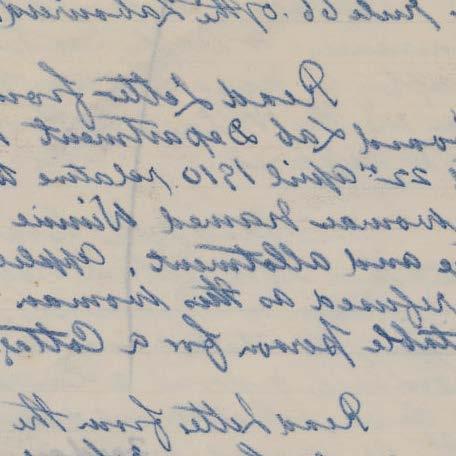 Rule 66. of the Labourers
Read Letter from
Board Lab Department
22nd April 1910 relative to
woman named Winnie
e and allotment. Applic
refused as this woman
table person for a Cottag
Read Letter from the